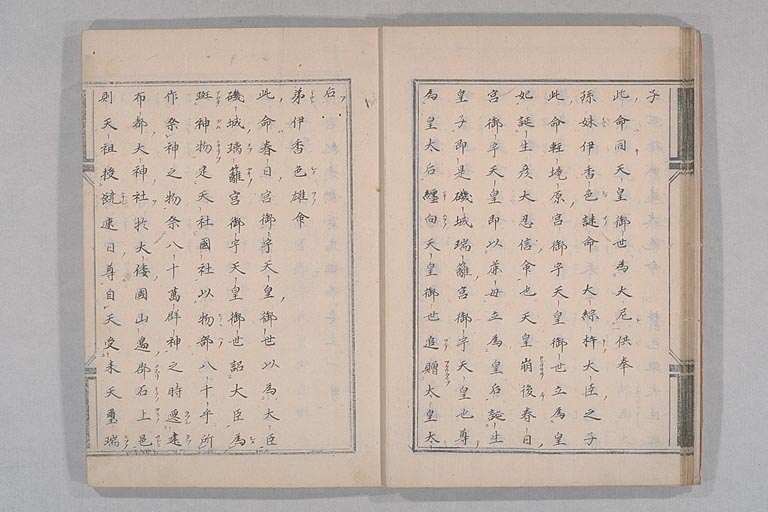 子
此命同天皇御世為大尼供奉
孫妹伊香色謎命大綜杵大臣之子
此命軽境原宮御宇天皇御世立為皇
妃誕生彦太忍信命也天皇崩後春日
宮御宇天皇即以庶母立為皇后誕生
皇子即是磯城瑞籬宮御宇天皇也尊
為皇太后纏向天皇御世追贈太皇太
后
弟伊香色雄命
此命春日宮御宇天皇御世以為大臣
磯城瑞籬宮御宇天皇御世詔大臣為
班神物定天社國社以物部八十手所
作祭神之物祭八十萬群神之時遷建
布都大神社於大倭國山邊郡石上邑
則天祖授饒速日尊自天受来天璽瑞